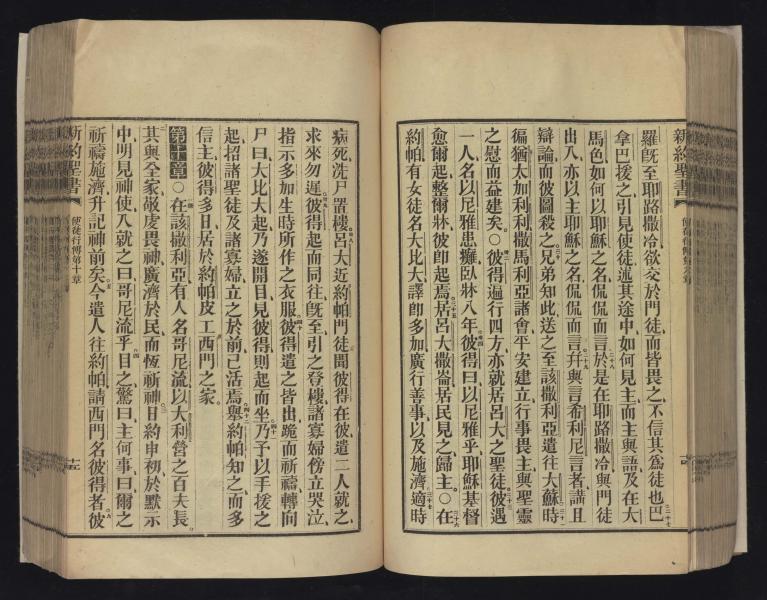 新約聖書
羅旣至耶路撒冷欲交於門徒而皆畏之不信其爲徒也巴
拿巴援之引見使徒述其途中如何見主而主與語及在大
馬色如何以耶穌之名侃侃而言於是在耶路撒冷與門徒
出入亦以主耶穌之名侃侃而言幷與言希利尼言者講且
辯論而彼圖殺之兄弟知此送之至該撒利亞遣往大蘇時
徧猶太加利利撒馬利亞諸會平安建立行事畏主與聖靈
之慰而益建矣○彼得遍行四方亦就居呂大之聖徒彼遇
一人名以尼雅患癱臥牀八年彼得曰以尼雅乎耶穌基督
愈爾起整爾牀彼卽起焉居呂大撒崙居民見之歸主○在
約帕有女徒名大比大譯卽多加廣行善事以及施濟適時
病死洗尸置樓呂大近約帕門徒聞彼得在彼遣二人就之
求來勿遲彼得起而同往旣至引之登樓諸寡婦傍立哭泣
指示多加生時所作之衣服彼得遣之皆出跪而祈禱轉向
尸曰大比大起乃遂開目見彼得則起而坐乃予以手援之
起招諸聖徒及諸寡婦立之於前已活焉舉約帕知之而多
信主彼得多日居於約帕皮工西門之家
第十章○在該撒利亞有人名哥尼流以大利營之百夫長
其與全家敬虔畏神廣濟於民而恆祈神日約申初於默示
中明見神使入就之曰哥尼流乎目之驚曰主何事曰爾之
祈禱施濟升記神前矣今遣人往約帕請西門名彼得者彼
新約聖書
使徒行傳第十章
十五